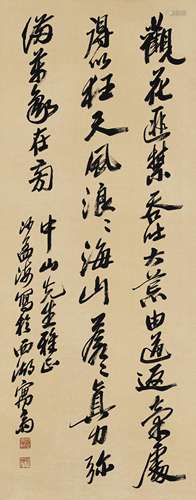 觀花匪禁吞吐大荒由道返氣處
得以狂天風浪浪海山蒼蒼真力彌
滿萬象在旁
中山先生雅正
沙孟海寫於西湖寓齋